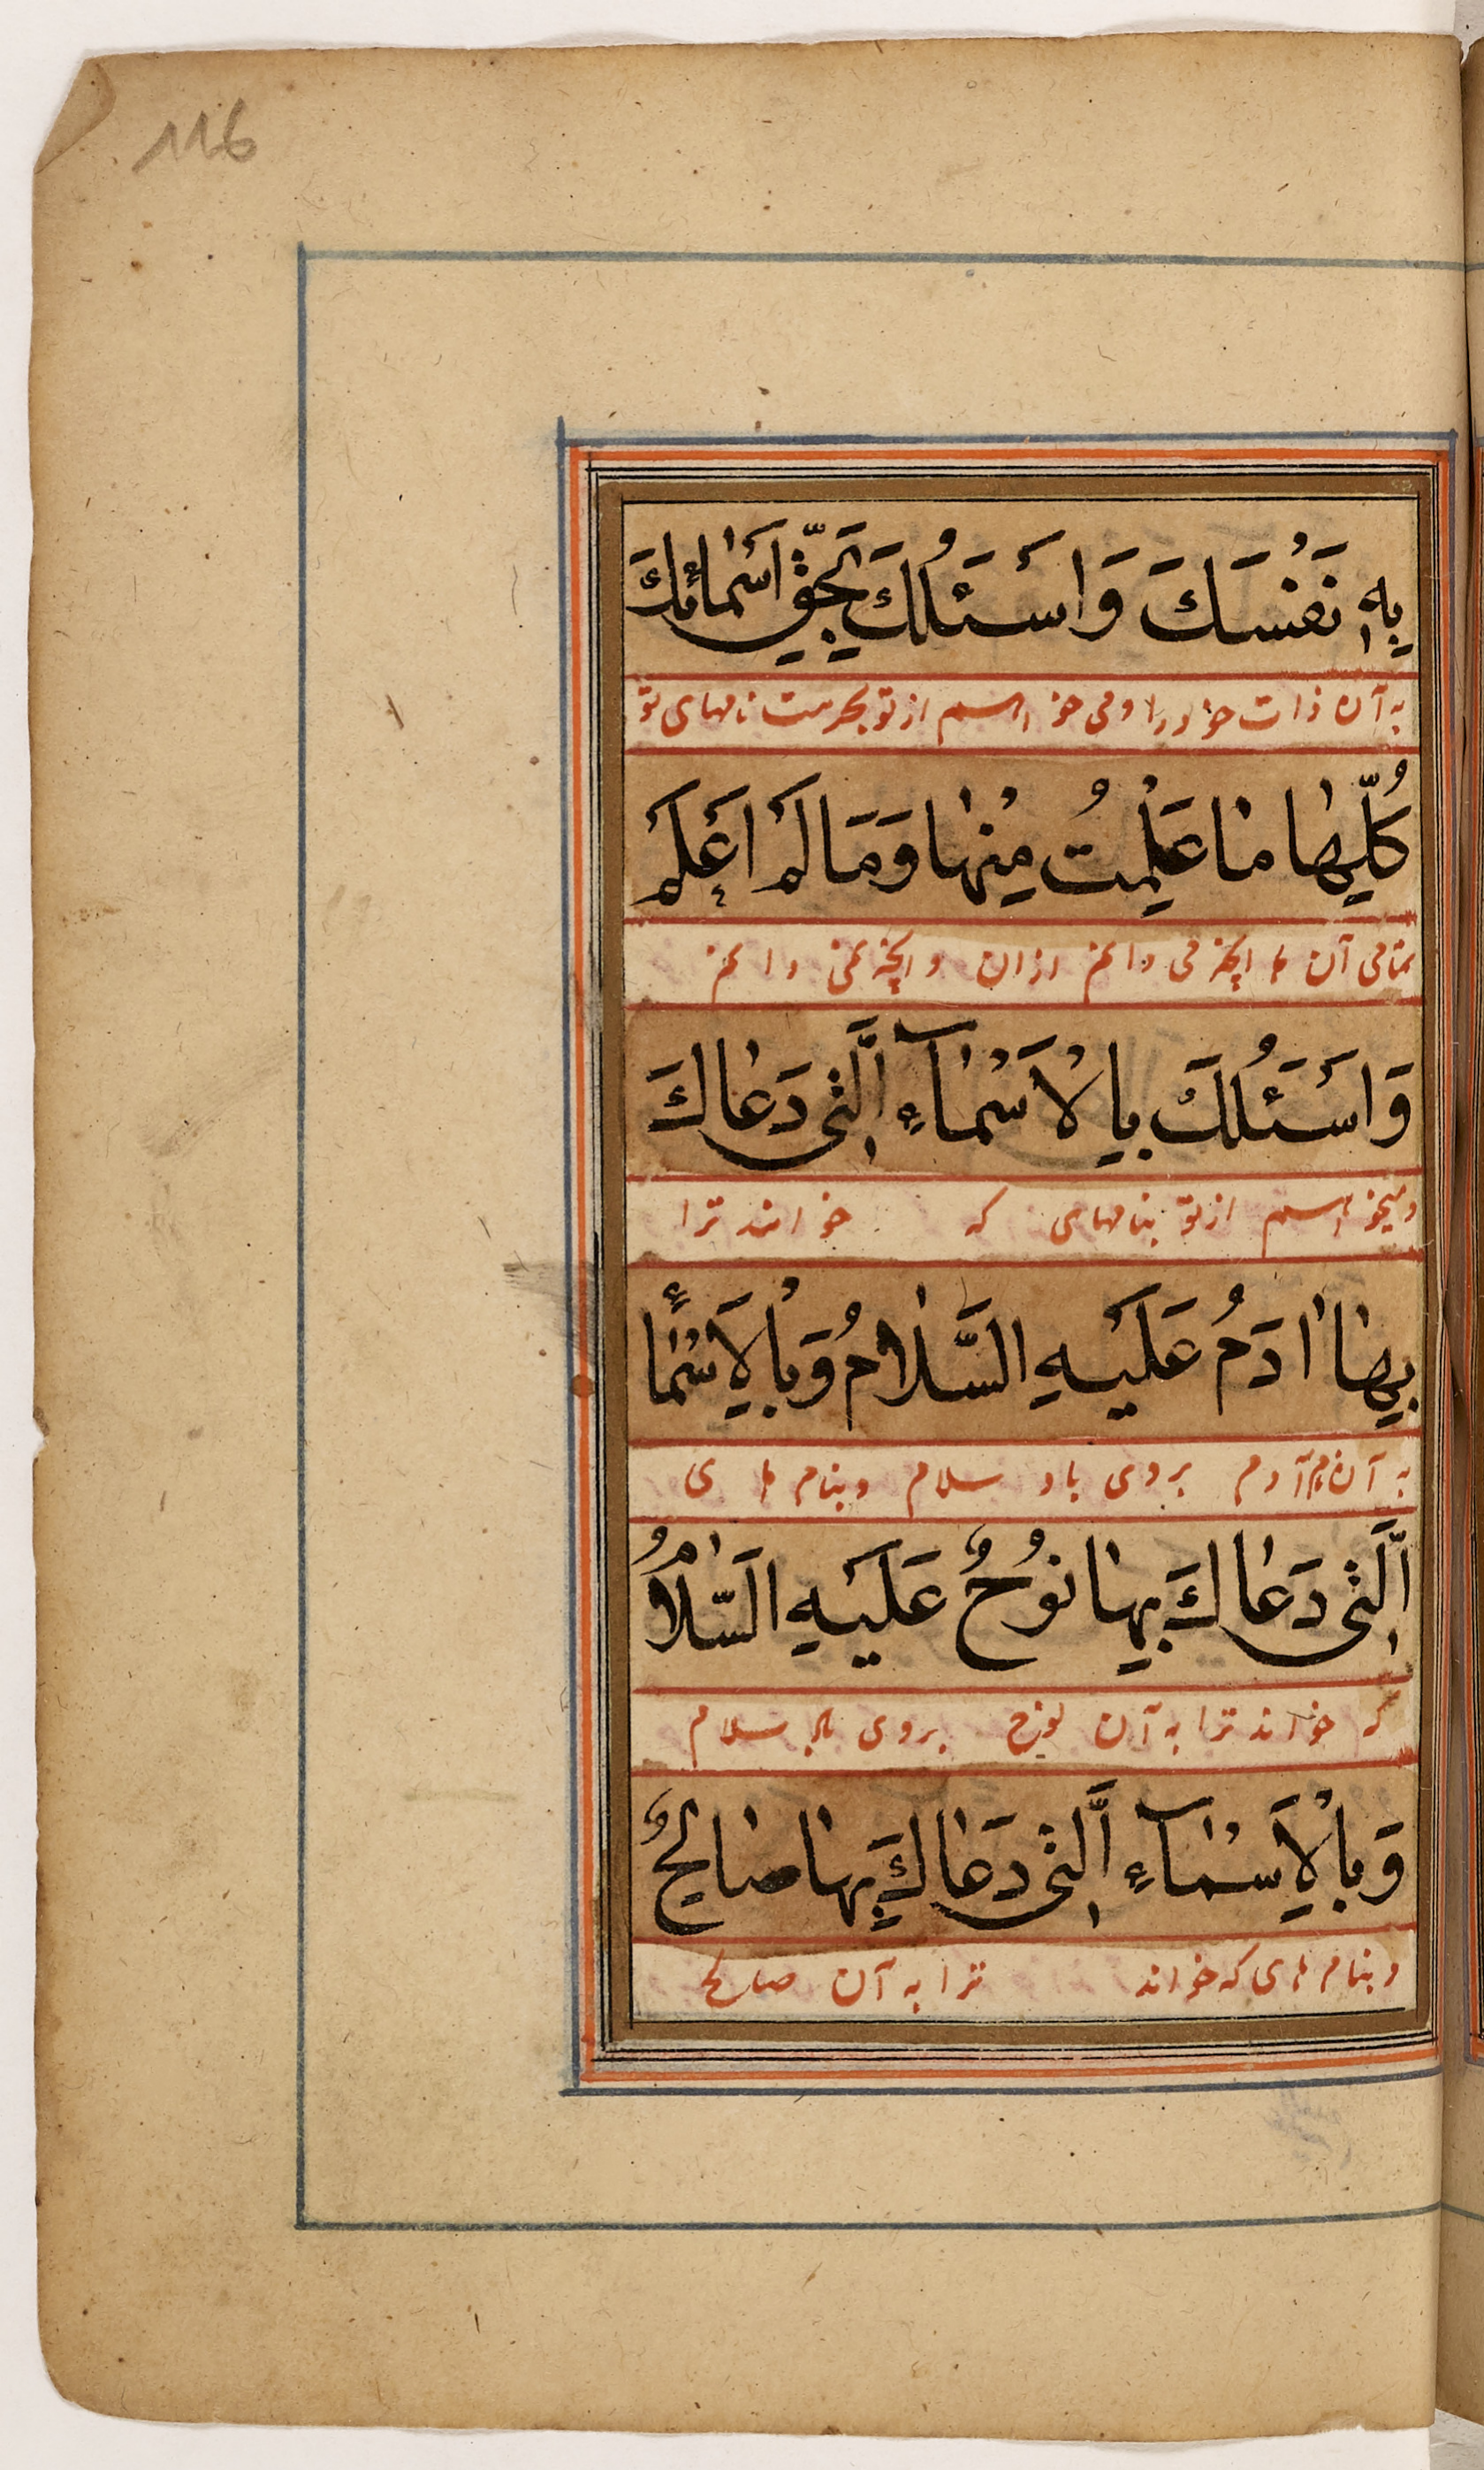 116
بِهٖ نَفْسَكَ وَاَسْئَلُكَ بِحَقِّ اَسْمٰائِكَ
به آن ذات خود را و می خواهم از تو بحرمت نامهای تو
كُلِّهٰا مٰا عَلِمْتُ مِنْهٰا وَمَا لَمْ اَعْلَمْ
تمامی آن ها آنچه می دانم ازان و آنچه نمی دانم
وَاَسْئَلُكَ بِالْاَسْمٰآءِ الَّتِی دَعٰاكَ
و میخواهم از تو بنامهای که خوانند ترا
بِهٰا اٰدَمُ عَلَیْهِ السَّلٰامُ وَبِالْاَسْمٰاءِ
به آن آدم بروی باد سلام و بنام های
الَّتِی دَعٰاكَ بِهٰا نُوحٌ عَلَیْهِ السَّلٰامُ
که خواند ترا به آن نوح بروی باد سلام
وَبِالْاَسْمٰآءِ الَّتِی دَعٰاكَ بِهٰا صٰالِحٌ
و بنام های که خواند ترا به آن صالح